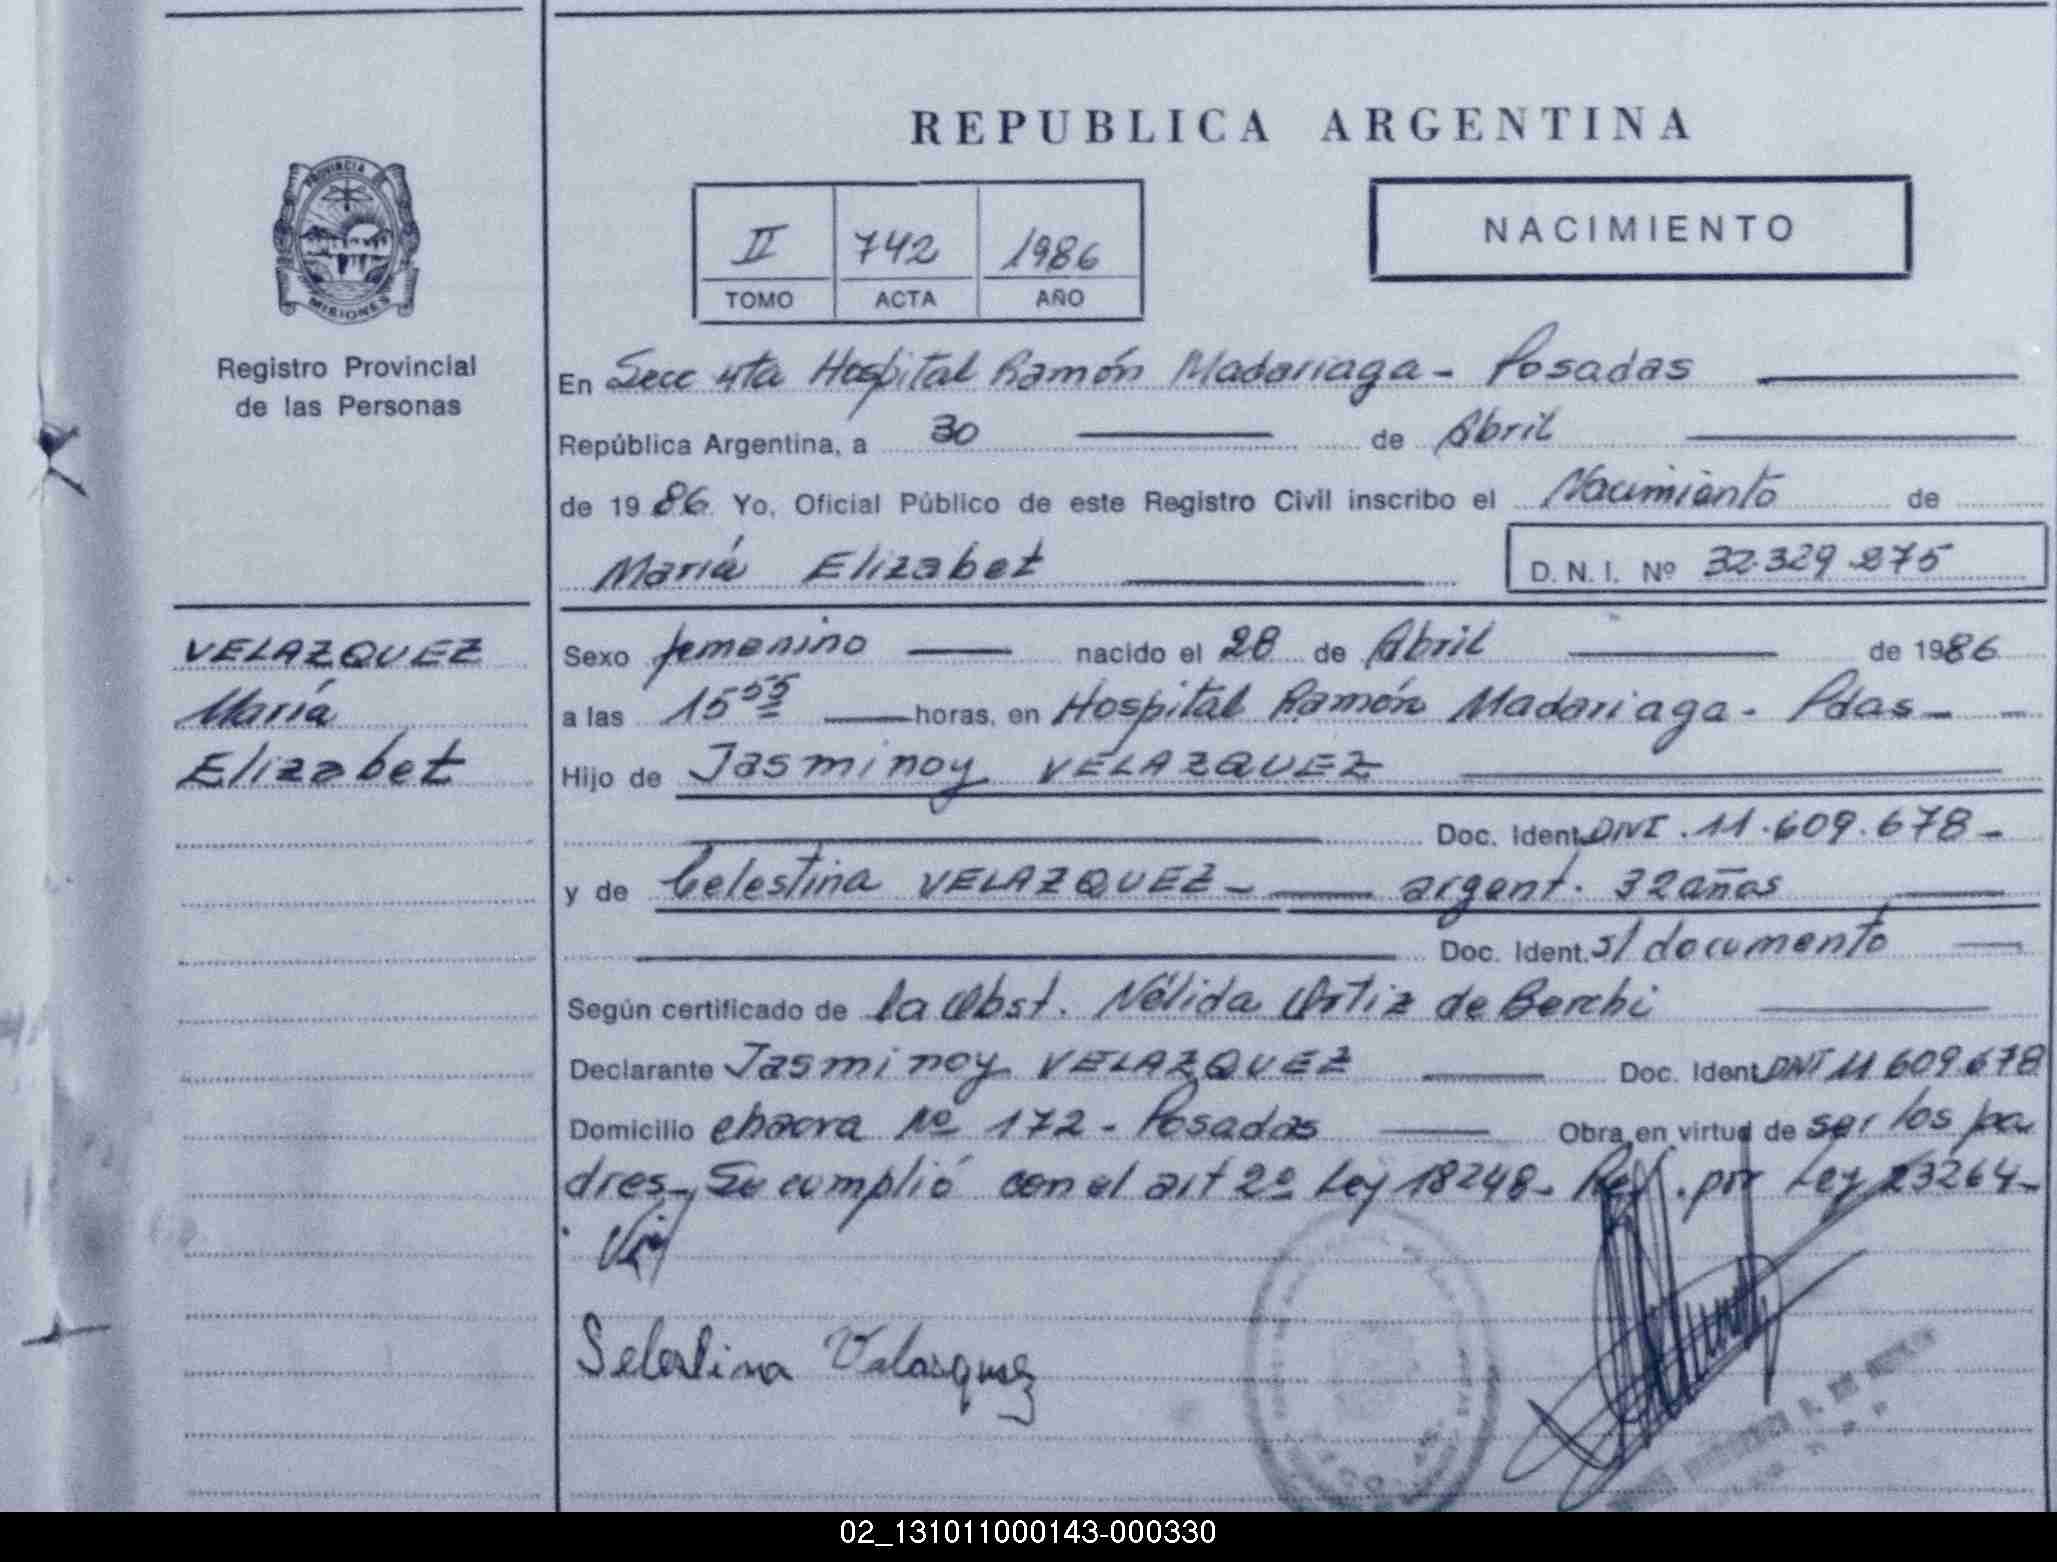 REPUBLICA ARGENTINA
PROVINCIA D
MISIONES
Registro Provincial
de las Personas
II 742 1986
TOMO ACTA AÑO
NACIMIENTO
En Secc 4ta Hospital Ramón Madariaga - Posadas
República Argentina, a 30 de Abril
de 1986 Yo, Oficial Público de este Registro Civil inscribo el Nacimiento de
María Elizabet D. N. I. Nº 32.329.275
VELAZQUEZ
María
Elizabet
Sexo femenino nacido el 28 de Abril de 1986
a las 15 55 horas, en Hospital Ramón Madariaga - Pdas -
Hijo de Jasminoy VELAZQUEZ
Doc. Ident. DNI . 11 . 609 . 678 -
y de Celestina VELAZQUEZ - argent. 32 años
Doc. Ident. s/ documento
Según certificado de la Obst. Nélida Ortiz de Berchi
Declarante Jasminoy VELAZQUEZ Doc. Ident. DNI 11 609.678
Domicilio chacra Nº 172 - Posadas Obra en virtud de ser los pa
dres - Se cumplió con el art 2º Ley 18248 - Ref. por Ley 23264 -
Selestina Velasquez
02_131011000143-000330